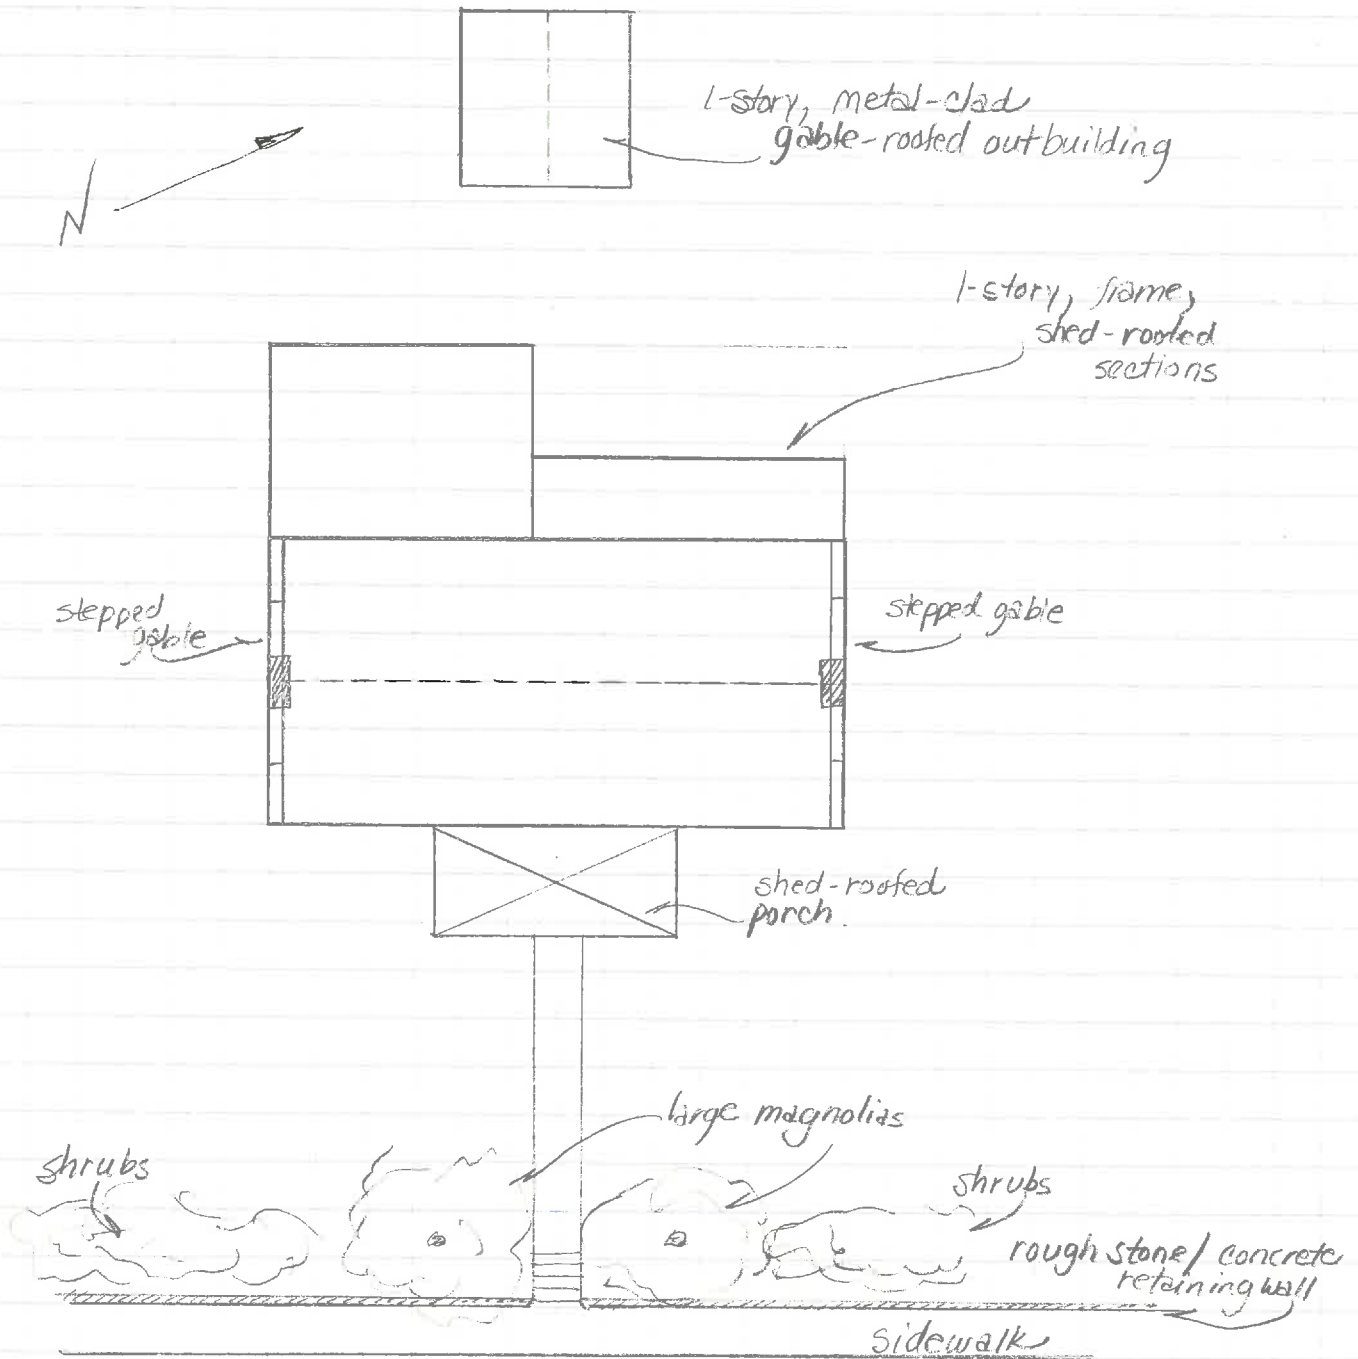 1-story, metal-clad
gable-roofed outbuilding
N
1-story, frame,
shed-roofed
sections
stepped
gable
stepped gable
shed-roofed
porch.
large magnolias
shrubs
shrubs
rough stone/concrete
retaining wall
sidewalk